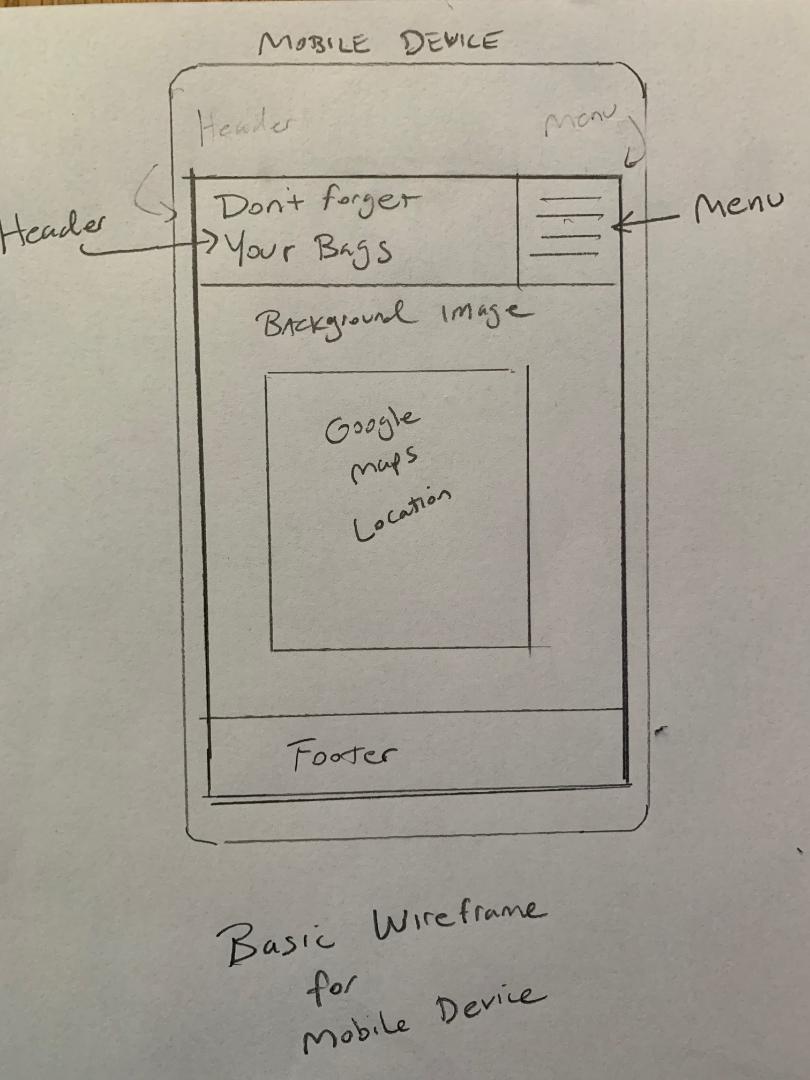 MOBILE DEVICE
Header
Menu
Header
Don't forget
Your Bags
Menu
Background Image
Google
Maps
Location
Footer
Basic Wireframe
for
Mobile Device